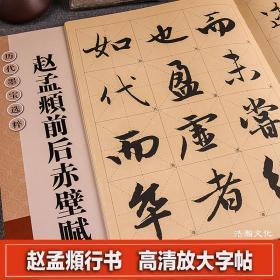 历代墨宝选粹
赵孟頫前后赤壁赋
而未嘗往
也盈虛者
如代而卒
浩瀚文化
赵孟頫行书 高清放大字帖